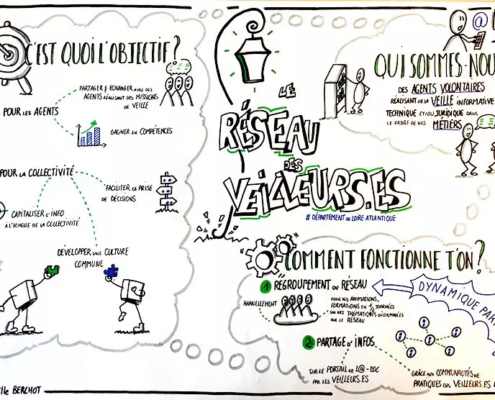 C'EST QUOI L'OBJECTIF?
POUR LES AGENTS
PARTAGER & ÉCHANGER AVEC DES
AGENTS RÉALISANT DES MISSIONS
DE VEILLE
GAGNER EN COMPÉTENCES
POUR LA COLLECTIVITÉ
FACILITER LA PRISE
DE DÉCISIONS
CAPITALISER L'INFO
À L'ÉCHELLE DE LA COLLECTIVITÉ
DÉVELOPPER UNE CULTURE
COMMUNE
BERCHOT
LE
RÉSEAU
DES
VEILLEURS.ES
# DÉPARTEMENT DE LOIRE-ATLANTIQUE
@
QUI SOMMES-NOU
DES AGENTS VOLONTAIRES
RÉALISANT DE LA VEILLE INFORMATIVE
TECHNIQUE ET/OU JURIDIQUE DANS
LE CADRE DE NOS MÉTIERS
COMMENT FONCTIONNE T'ON?
1 REGROUPEMENT DU RÉSEAU
ANNUELLEMENT
POUR DES ANIMATIONS,
FORMATIONS
SUR DES THÉMATIQUES DÉTERMINÉES
PAR LE RÉSEAU
DYNAMIQUE PAR
2 PARTAGE D'INFOS
SUR LE PORTAIL DE L@-DOC
PAR LES VEILLEURS.ES
GRÂCE AUX COMMUNAUTÉS DE
PRATIQUES DES VEILLEURS.ES